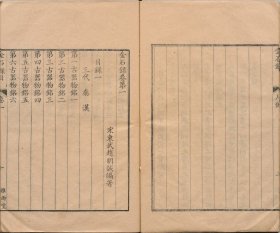 金石錄卷第一
宋東武趙明誠編著
目錄一
三代 秦 漢
第一古器物銘一
第二古器物銘二
第三古器物銘三
第四古器物銘四
第五古器物銘五
第六古器物銘六